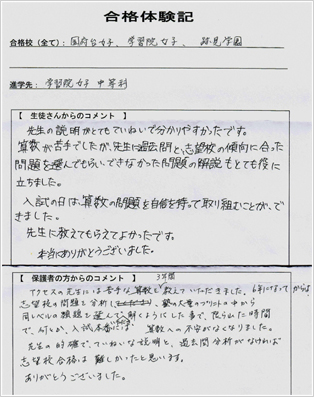 合格体験記
合格校（全て）：国府台女子、学習院女子、跡見学園
進学先：学習院女子中等科
【 生徒さんからのコメント 】
先生の説明がとてもていねいで分かりやすかったです。
算数が苦手でしたが、先生に過去問と、志望校の傾向に合った
問題を選んでもらい、できなかった問題の解説もとても役に
立ちました。
入試の日は、算数の問題を自信を持って取り組むことが、で
きました。
先生に教えてもらえてよかったです。
本当にありがとうございました。
【 保護者の方からのコメント 】
3年間
アクセスの先生には苦手な算数を教えていただきました。6年になってからは
志望校の問題を分析し、大量のプリントの中から
同レベルの類題を選んで、解くようにした事で、限られた時間
で、入試本番には、算数への不安がなくなりました。
先生の的確で、ていねいな説明と、過去問分析がなければ
志望校合格は難しかったと思います。
ありがとうございました。